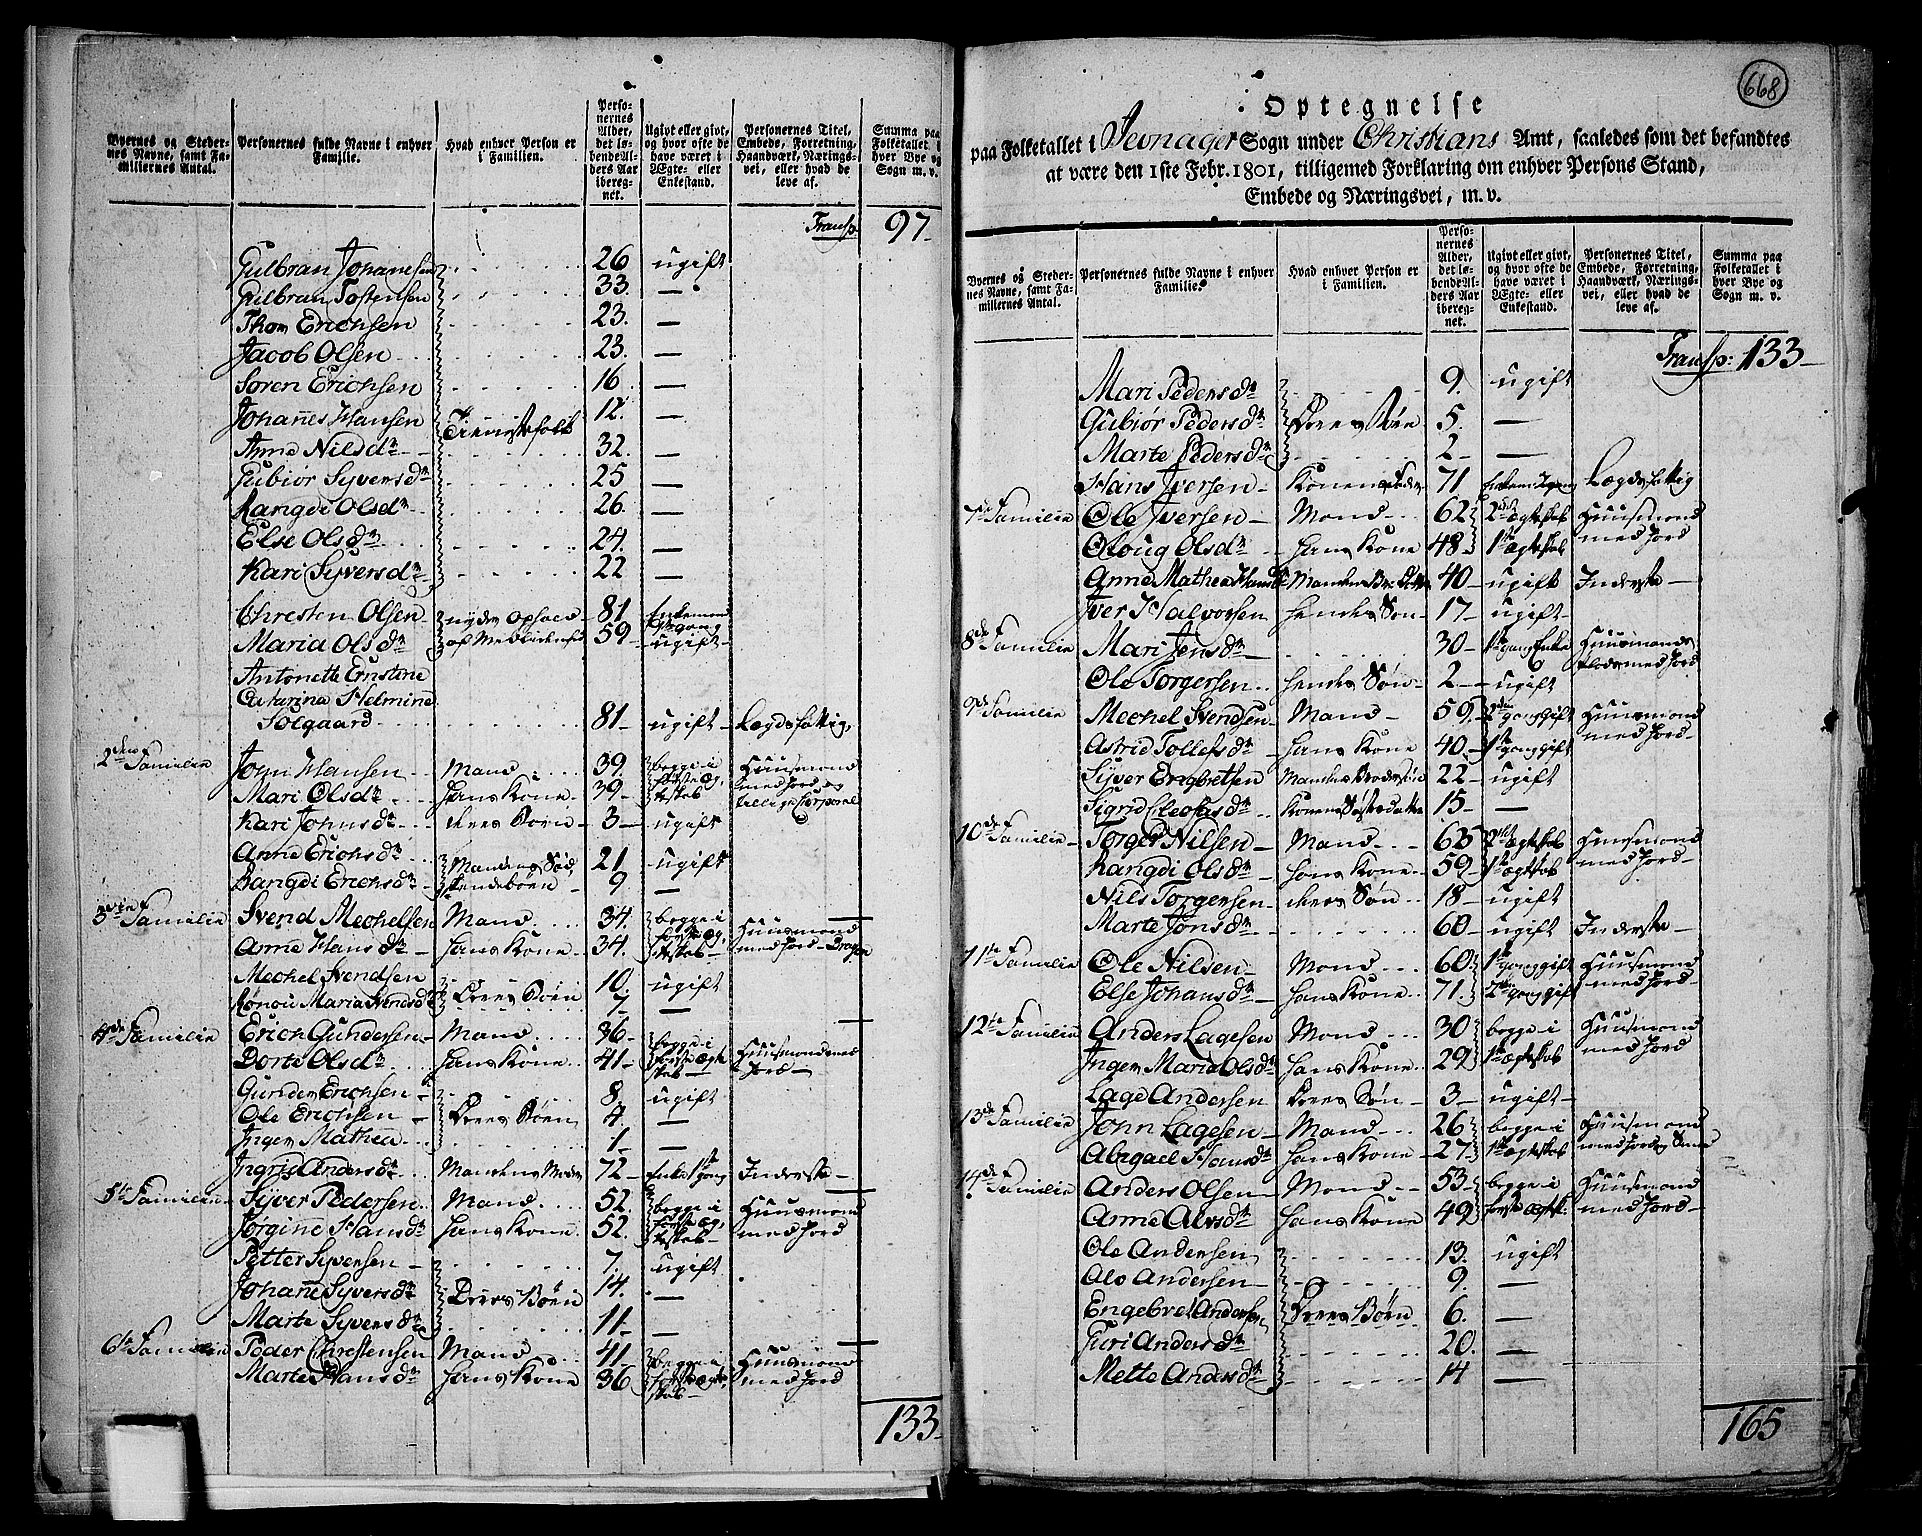 Byernes og Stedernes Navne, samt Familiernes Antal. | Personernes fulde Navne i enhver Familie. | Hvad enhver Person er i Familien. | Personernes Alder, det løbende Alders Aar iberegnet. | Ugivt eller givt, og hvor ofte de have været i Ægte- eller Enkestand. | Personernes Titel, Embede, Forretning, Haandværk, Næringsvei, eller hvad de leve af. | Summa paa Folketallet i hver Bye og Sogn m. v.
Transp: 97
Gulbran Johanesen 26 ugift
Gulbran Tostensen 33. —
Thom Erichsen 23. —
Jacob Olsen 23. —
Søren Erichsen 16 —
Johannes Hansen Tienistefolk 12. —
Anne Nilsdr 32. —
Gubiør Syversdr 25 —
Rangdi Olsdr 26. —
Else Olsdr 24. —
Kari Syversdr 22 —
Chresten Olsen nyder Ophold 81 Enkemand 1ste gang
Maria Olsdr 59 ugift
Antonette Ernstine
Catarina Helmine
Solgaard 81 ugift Lægdsfattig
2den Familie John Hansen Mand 39. begge i første ægteskab Huusmand med Jord og tillige Corporal
Mari Olsdr Hans Kone 39
Kari Johnsdr deres Barn 3 ugift
Anne Erichsdr 21. ugift
Rangdi Erichsdr 9 —
3die Familie Svend Mechelsen Mand 34. begge i første ægteskab Huusmand med Jord Dragon
Anne Hansdr Hans Kone 34.
Mechel Svendsen 10. ugift
Ronou Maria Svendsdr Deres Børn 7
4de Familie Erich Gundersen Mand 36 begge i første ægteskab Huusmand med Jord
Dorte Olsdr Hans Kone 41
Gunder Erichsen 8. ugift
Ole Erichsen Deres Børn 4 —
Inger Mathea 1 —
Ingrid Andersdr Mandens Moder 72 Enke 1ste gang Inderste
5te Familie Syver Pedersen Mand 52. begge i første ægteskab Huusmand med Jord
Jorgine Hansdr Hans Kone 52.
Petter Syversen 7. ugift
Johanne Syversdr Deres Børn 14. —
Marte Syversdr 11 —
6te Familie Peder Chrestensen Mand 41. begge i første ægteskab Huusmand med Jord
Marte Hansdr Hans Kone 36
133
668
Optegnelse
paa Folketallet i Jevnager Sogn under Christians Amt, saaledes som det befandtes
at være den 1ste Febr. 1801, tilligemed Forklaring om enhver Persons Stand,
Embede og Næringsvei, m. v.
Byernes og Stedernes Navne, samt Familiernes Antal. | Personernes fulde Navne i enhver Familie. | Hvad enhver Person er i Familien. | Personernes Alder, det løbende Alders Aar iberegnet. | Ugivt eller givt, og hvor ofte de have været i Ægte- eller Enkestand. | Personernes Titel, Embede, Forretning, Haandværk, Næringsvei, eller hvad de leve af. | Summa paa Folketallet i hver Bye og Sogn m. v.
Transp: 133
Mari Pedersdr 9. ugift
Gubiør Pedersdr Deres Børn 5. —
Marte Pedersdr 2 —
Hans Iversen Konens Fader 71 Lægdsfattig
7de Familie Ole Iversen Mand 62 2det ægteskab Huusmand med Jord
Oloug Olsdr Hans Kone 48 1ste ægteskab
Anne Mathea Hansdr 40 ugift Inderste
Iver Halvorsen Hendes Søn 17 ugift
8de Familie Mari Jensdr 30 1ste gang Enke med Jord
Ole Torgersen Hendes Søn 2 ugift
9de Familie Mechel Svendsen Mand 59. 2den gang gift Huusmand med Jord
Astrid Tollefsdr Hans Kone 40 1ste gang gift
Syver Engbretsen Mandens Brodersøn 22 ugift
Sigrid Cleofasdr Konens Søsterdatter 15 —
10de Familie Torger Nilsen Mand 63 2det ægteskab Huusmand med Jord
Rangdi Olsdr Hans Kone 59 1ste ægteskab
Nils Torgersen deres Søn 18 ugift
Marte Jonsdr 60 ugift Inderste
11te Familie Ole Nilsen Mand 60 1ste gang gift Huusmand med Jord
Else Johansdr Hans Kone 71. 2den gang gift
12te Familie Anders Lagesen Mand 30 begge i 1ste ægteskab Huusmand med Jord
Inger Maria Olsdr Hans Kone 29
Lage Andersen Deres Søn 3 ugift
13de Familie John Lagesen Mand 26 begge i 1ste ægteskab Huusmand med Jord og
Abigael Hansdr Hans Kone 27.
14de Familie Anders Olsen Mand 53 begge i første ægtesk. Huusmand med Jord
Anne Alvsdr Hans Kone 49
Ole Andersen 13. ugift
Alv Andersen 9. —
Engebret Andersen Deres Børn 6. —
Guri Andersdr 20. —
Mette Andersdr 14 —
165